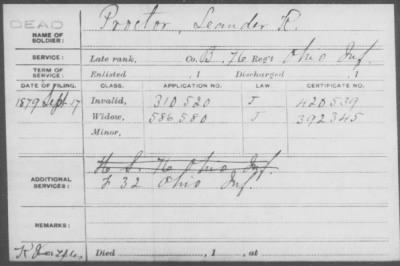 DEAD
NAME OF SOLDIER: Proctor, Leander K.
SERVICE: Late rank, Co. B, 76 Reg't Ohio Inf.
TERM OF SERVICE: Enlisted , 1 Discharged , 1
DATE OF FILING. CLASS. APPLICATION NO. LAW CERTIFICATE NO.
1879 Sept 17 Invalid, 310520 J 420539
Widow, 586580 J 392345
Minor,
ADDITIONAL SERVICES: Ohio Inf.
F 32 Ohio Inf.
REMARKS:
Died , 1 , at